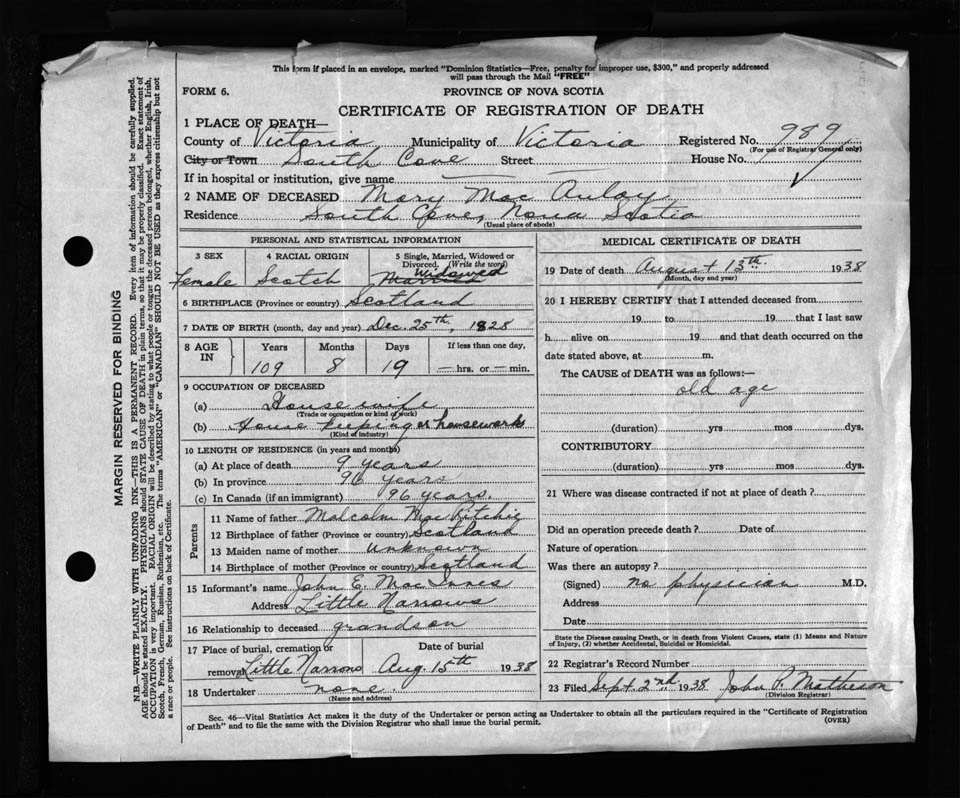 This form if placed in an envelope, marked "Dominion Statistics—Free, penalty for improper use, $300," and properly addressed
will pass through the Mail "FREE"
FORM 6.
PROVINCE OF NOVA SCOTIA
CERTIFICATE OF REGISTRATION OF DEATH
1 PLACE OF DEATH—
County of Victoria Municipality of Victoria Registered No. 989
(For use of Registrar General only)
City or Town South Cove Street House No.
If in hospital or institution, give name
2 NAME OF DECEASED Mary Mac Aulay
Residence South Cove, Nova Scotia
(Usual place of abode)
PERSONAL AND STATISTICAL INFORMATION
3 SEX 4 RACIAL ORIGIN 5 Single, Married, Widowed or
Divorced. (Write the word)
Female Scotch Married Widowed
6 BIRTHPLACE (Province or country) Scotland
7 DATE OF BIRTH (month, day and year) Dec. 25th, 1828
8 AGE IN Years Months Days If less than one day,
109 8 19 — hrs. or — min.
9 OCCUPATION OF DECEASED
(a) House wife
(Trade or occupation or kind of work)
(b) House keeping or housework
(Kind of industry)
10 LENGTH OF RESIDENCE (in years and months)
(a) At place of death 9 years
(b) In province 96 years
(c) In Canada (if an immigrant) 96 years.
Parents
11 Name of father Malcolm MacRitchie
12 Birthplace of father (Province or country) Scotland
13 Maiden name of mother Unknown
14 Birthplace of mother (Province or country) Scotland
15 Informant's name John E. Mac Innes
Address Little Narrows
16 Relationship to deceased grandson
17 Place of burial, cremation or removal Date of burial
Little Narrows Aug. 15th 1938
18 Undertaker none
(Name and address)
MEDICAL CERTIFICATE OF DEATH
19 Date of death August 13th. 1938
(Month, day and year)
20 I HEREBY CERTIFY that I attended deceased from
19 to 19 that I last saw
h alive on 19 and that death occurred on the
date stated above, at m.
The CAUSE of DEATH was as follows:—
old age
(duration) yrs mos dys.
CONTRIBUTORY
(duration) yrs mos dys.
21 Where was disease contracted if not at place of death?
Did an operation precede death? Date of
Nature of operation
Was there an autopsy?
(Signed) no physician M.D.
Address
Date
State the Disease causing Death, or in death from Violent Causes, state (1) Means and Nature
of Injury, (2) whether Accidental, Suicidal or Homicidal.
22 Registrar's Record Number
23 Filed Sept 2nd. 1938 John P. Matheson
(Division Registrar)
Sec. 46—Vital Statistics Act makes it the duty of the Undertaker or person acting as Undertaker to obtain all the particulars required in the "Certificate of Registration
of Death" and to file the same with the Division Registrar who shall issue the burial permit.
(OVER)
MARGIN RESERVED FOR BINDING
N.B.—WRITE PLAINLY WITH UNFADING INK—THIS IS A PERMANENT RECORD. Every item of information should be carefully supplied.
AGE should be stated EXACTLY. PHYSICIANS should STATE CAUSE OF DEATH in plain terms, so that it may be properly classified. Exact statement of
OCCUPATION is very important. RACIAL ORIGIN will be described by stating to what people or tongue the deceased person belonged, whether English, Irish,
Scotch, French, German, Russian, Ruthenian, etc. The terms "AMERICAN" or "CANADIAN" SHOULD NOT BE USED as they express citizenship but not
a race or people. See instructions on back of Certificate.